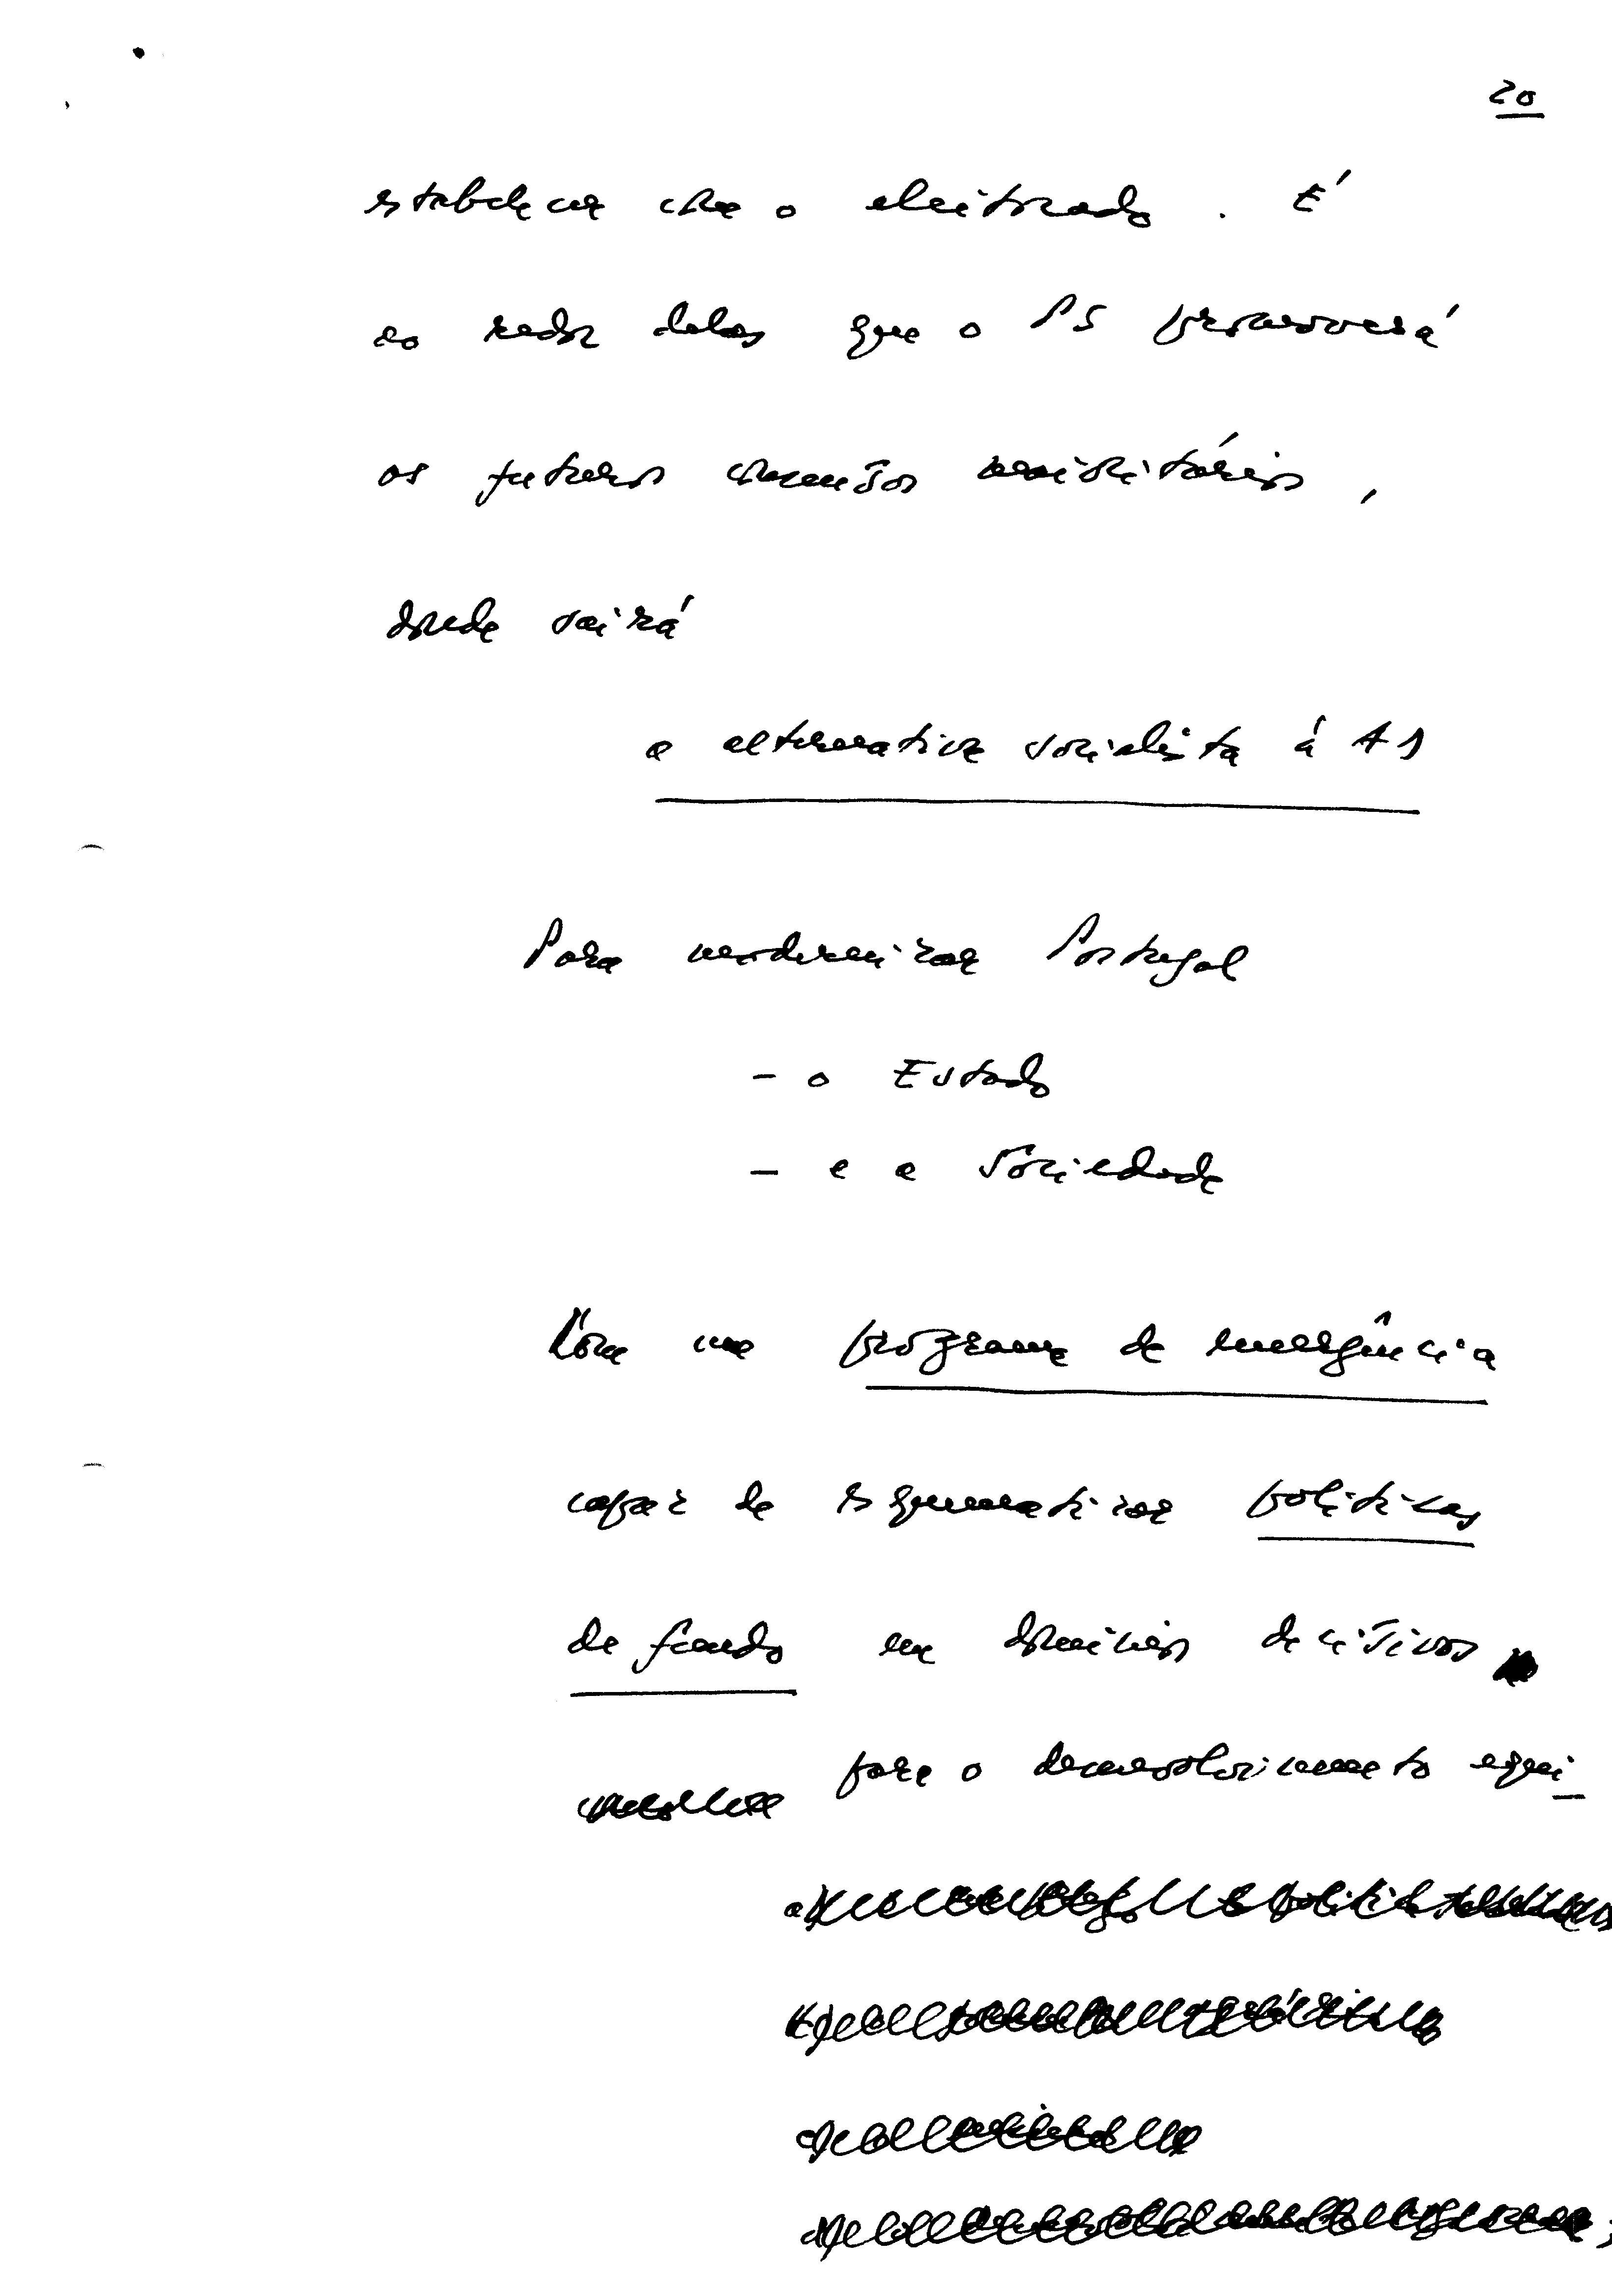 20
estabelecer com o eleitorado. É
ao redor delas que o PS promoverá
os futuros consensos maioritários,
donde sairá
a alternativa socialista à AD
Para modernizar Portugal
- o Estado
- e a Sociedade
Com um programa de emergência
capaz de esquematizar políticas
de fundo em domínios decisivos
para o desenvolvimento equi-